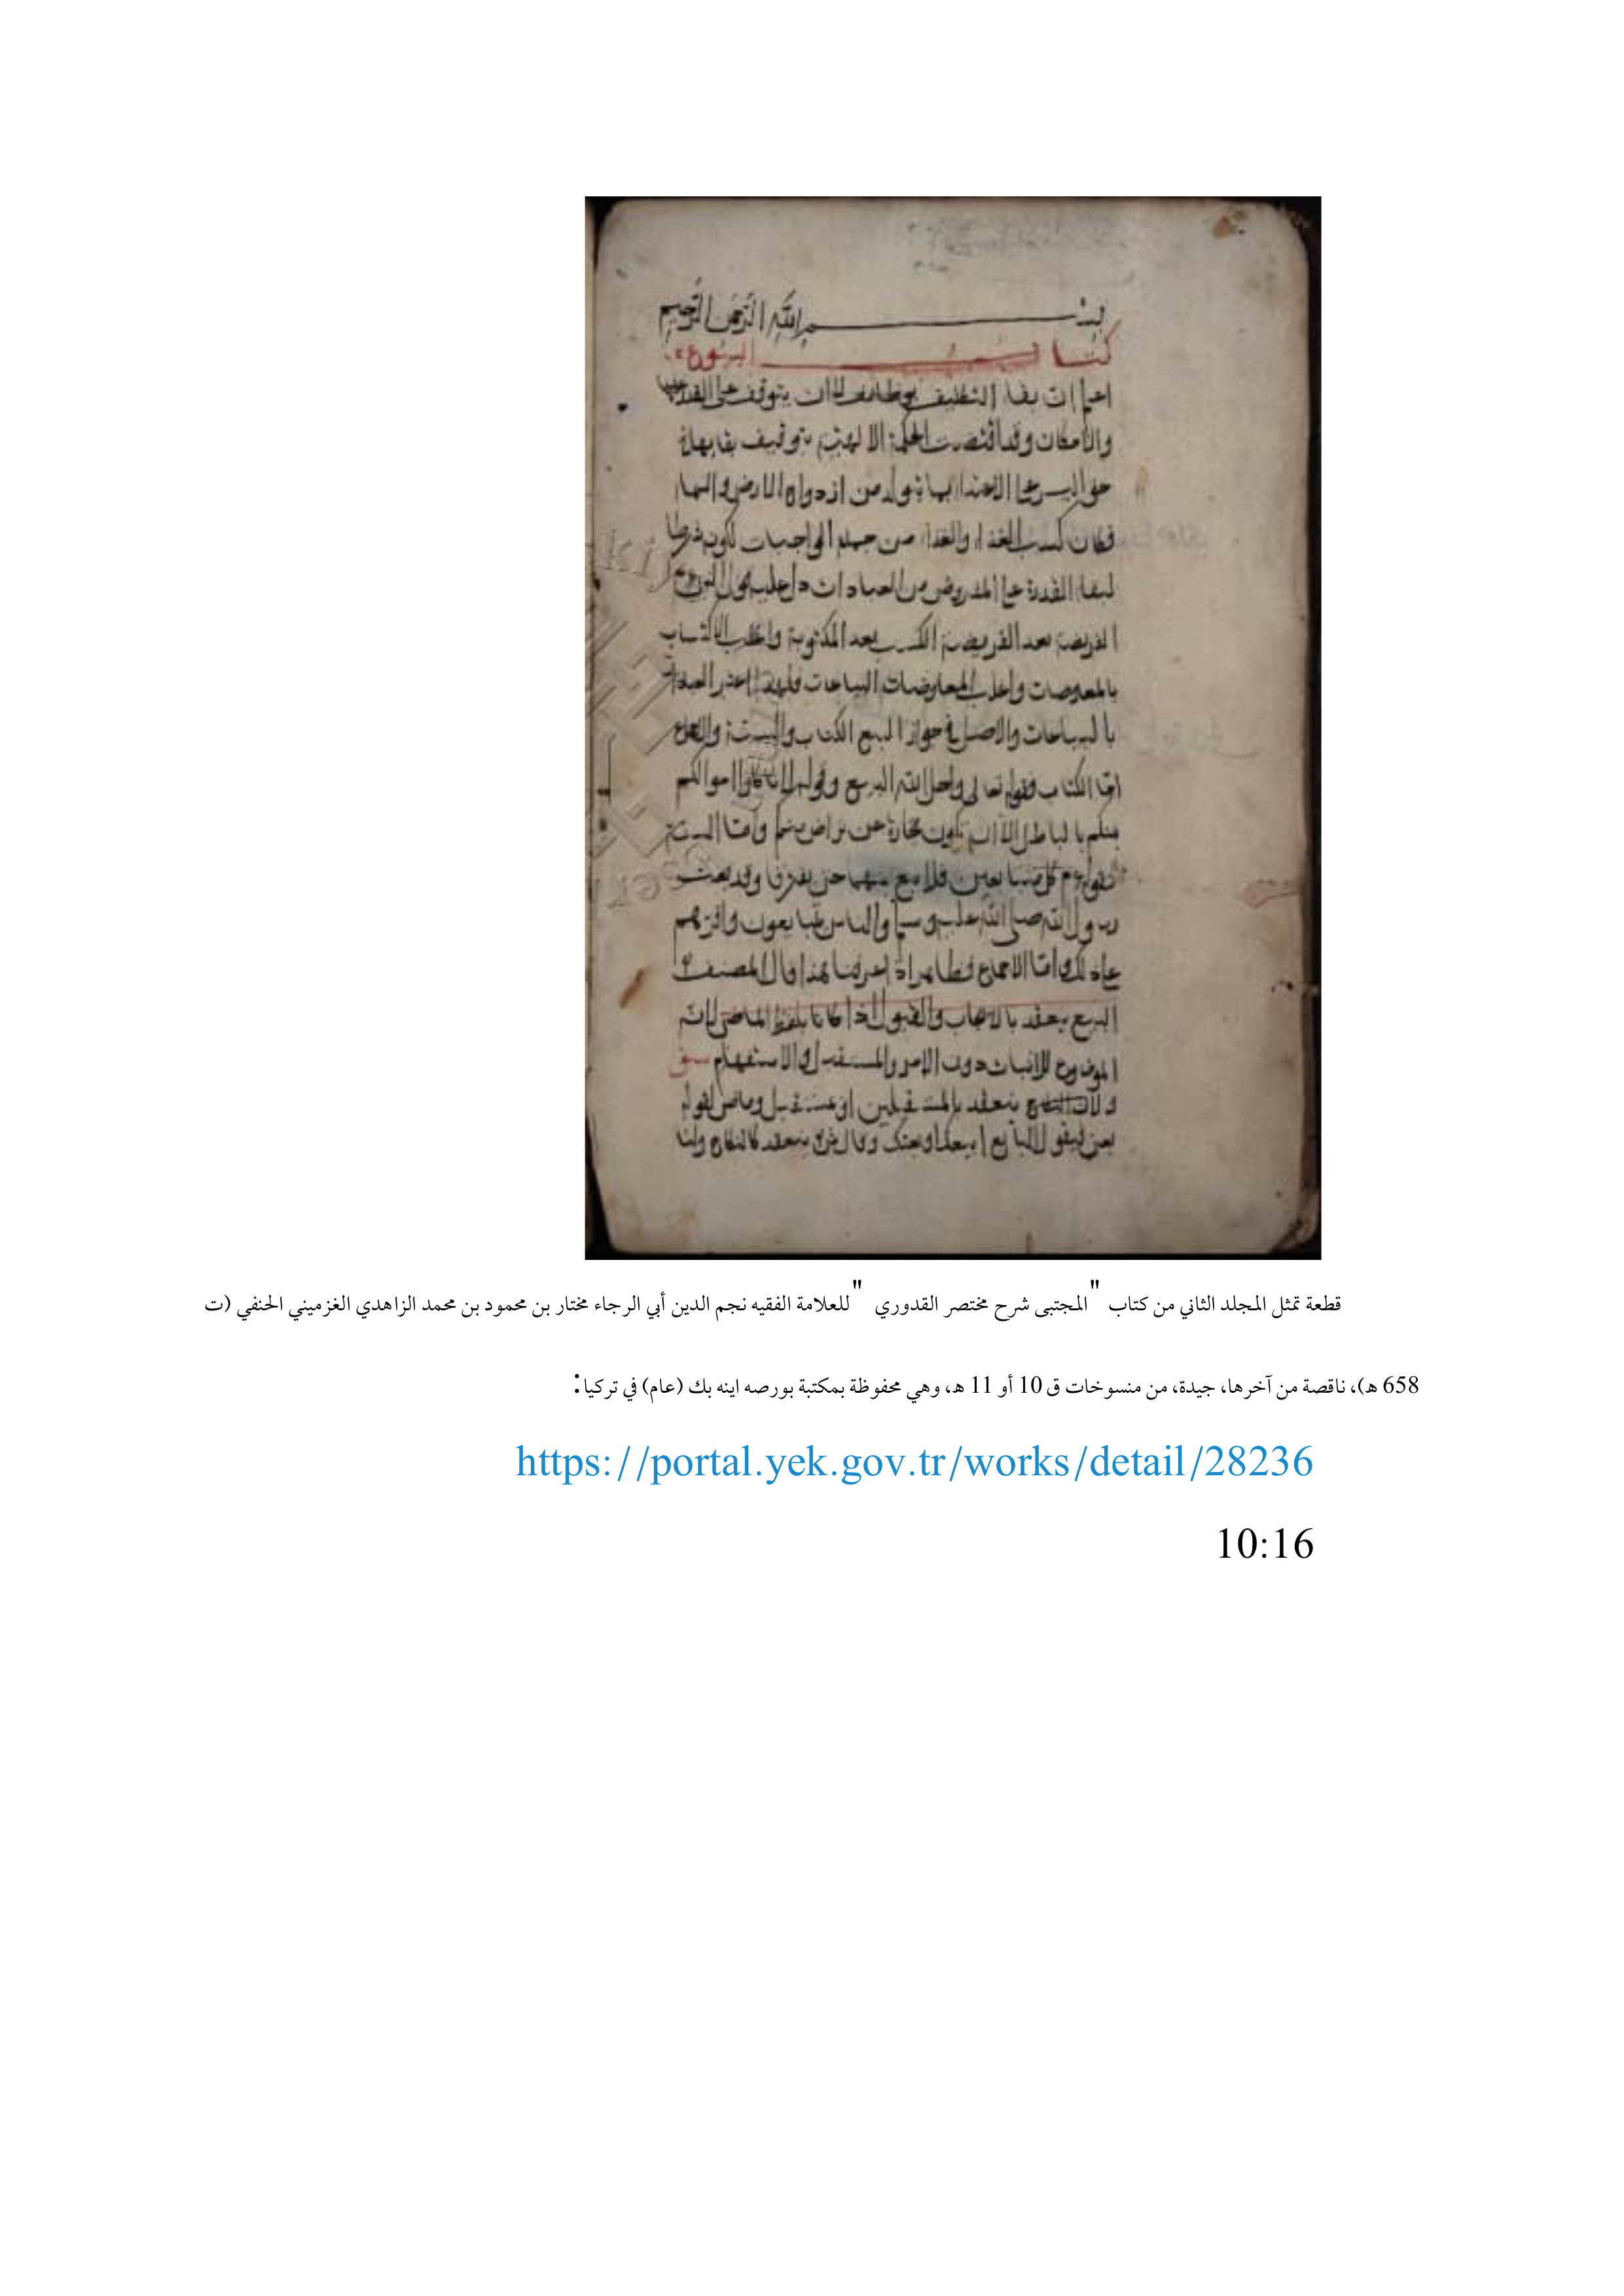 بسم الله الرحمن الرحيم
كتاب البيوع
اعلم ان بقا التكليف يتوقف على القدرة
والامكان وقد اقتضت الحكمة الالهية بتوقيف بقا بهذا
الارض والسما
فكان كسب الغذا والغذا من جملة الواجبات لكونه شرطا
لبقا القدرة على المفروض من العبادات دل عليه
الفريضة بعد الفريضة الكسب بعد المكتوبة واغلب الاكتساب
بالمعاوضات واغلب المعاوضات البياعات فلهذا
بالبياعات والاصل في جواز البيع الكتاب والسنة والاجماع
اما الكتاب فقوله تعالى واحل الله البيع وقوله لا تاكلوا اموالكم
بينكم بالباطل الا ان تكون تجارة عن تراض منكم واما السنة
فلا بيع بينهما حتى يفترقا وقد بعث
رسول الله صلى الله عليه وسلم والناس يتبايعون واقرهم
على ذلك واما الاجماع فظاهر اذا عرفنا هذا قال المصنف
البيع ينعقد بالايجاب والقبول اذا كانا بلفظ الماضي لانه
الموضوع للاثبات دون الامر والمستقبل والاستفهام
ولا ينعقد بالمستقبلين او مستقبل وماض لقوله
يعني ليقول البايع ابيعك او بعتك وقال ينعقد كالنكاح ولنا
قطعة تمثل المجلد الثاني من كتاب "المجتبى شرح مختصر القدوري " للعلامة الفقيه نجم الدين أبي الرجاء مختار بن محمود بن محمد الزاهدي الغزميني الحنفي (ت
658 هـ)، ناقصة من آخرها، جيدة، من منسوخات ق 10 أو 11 هـ، وهي محفوظة بمكتبة بورصه اينه بك (عام) في تركيا:
https://portal.yek.gov.tr/works/detail/28236
10:16